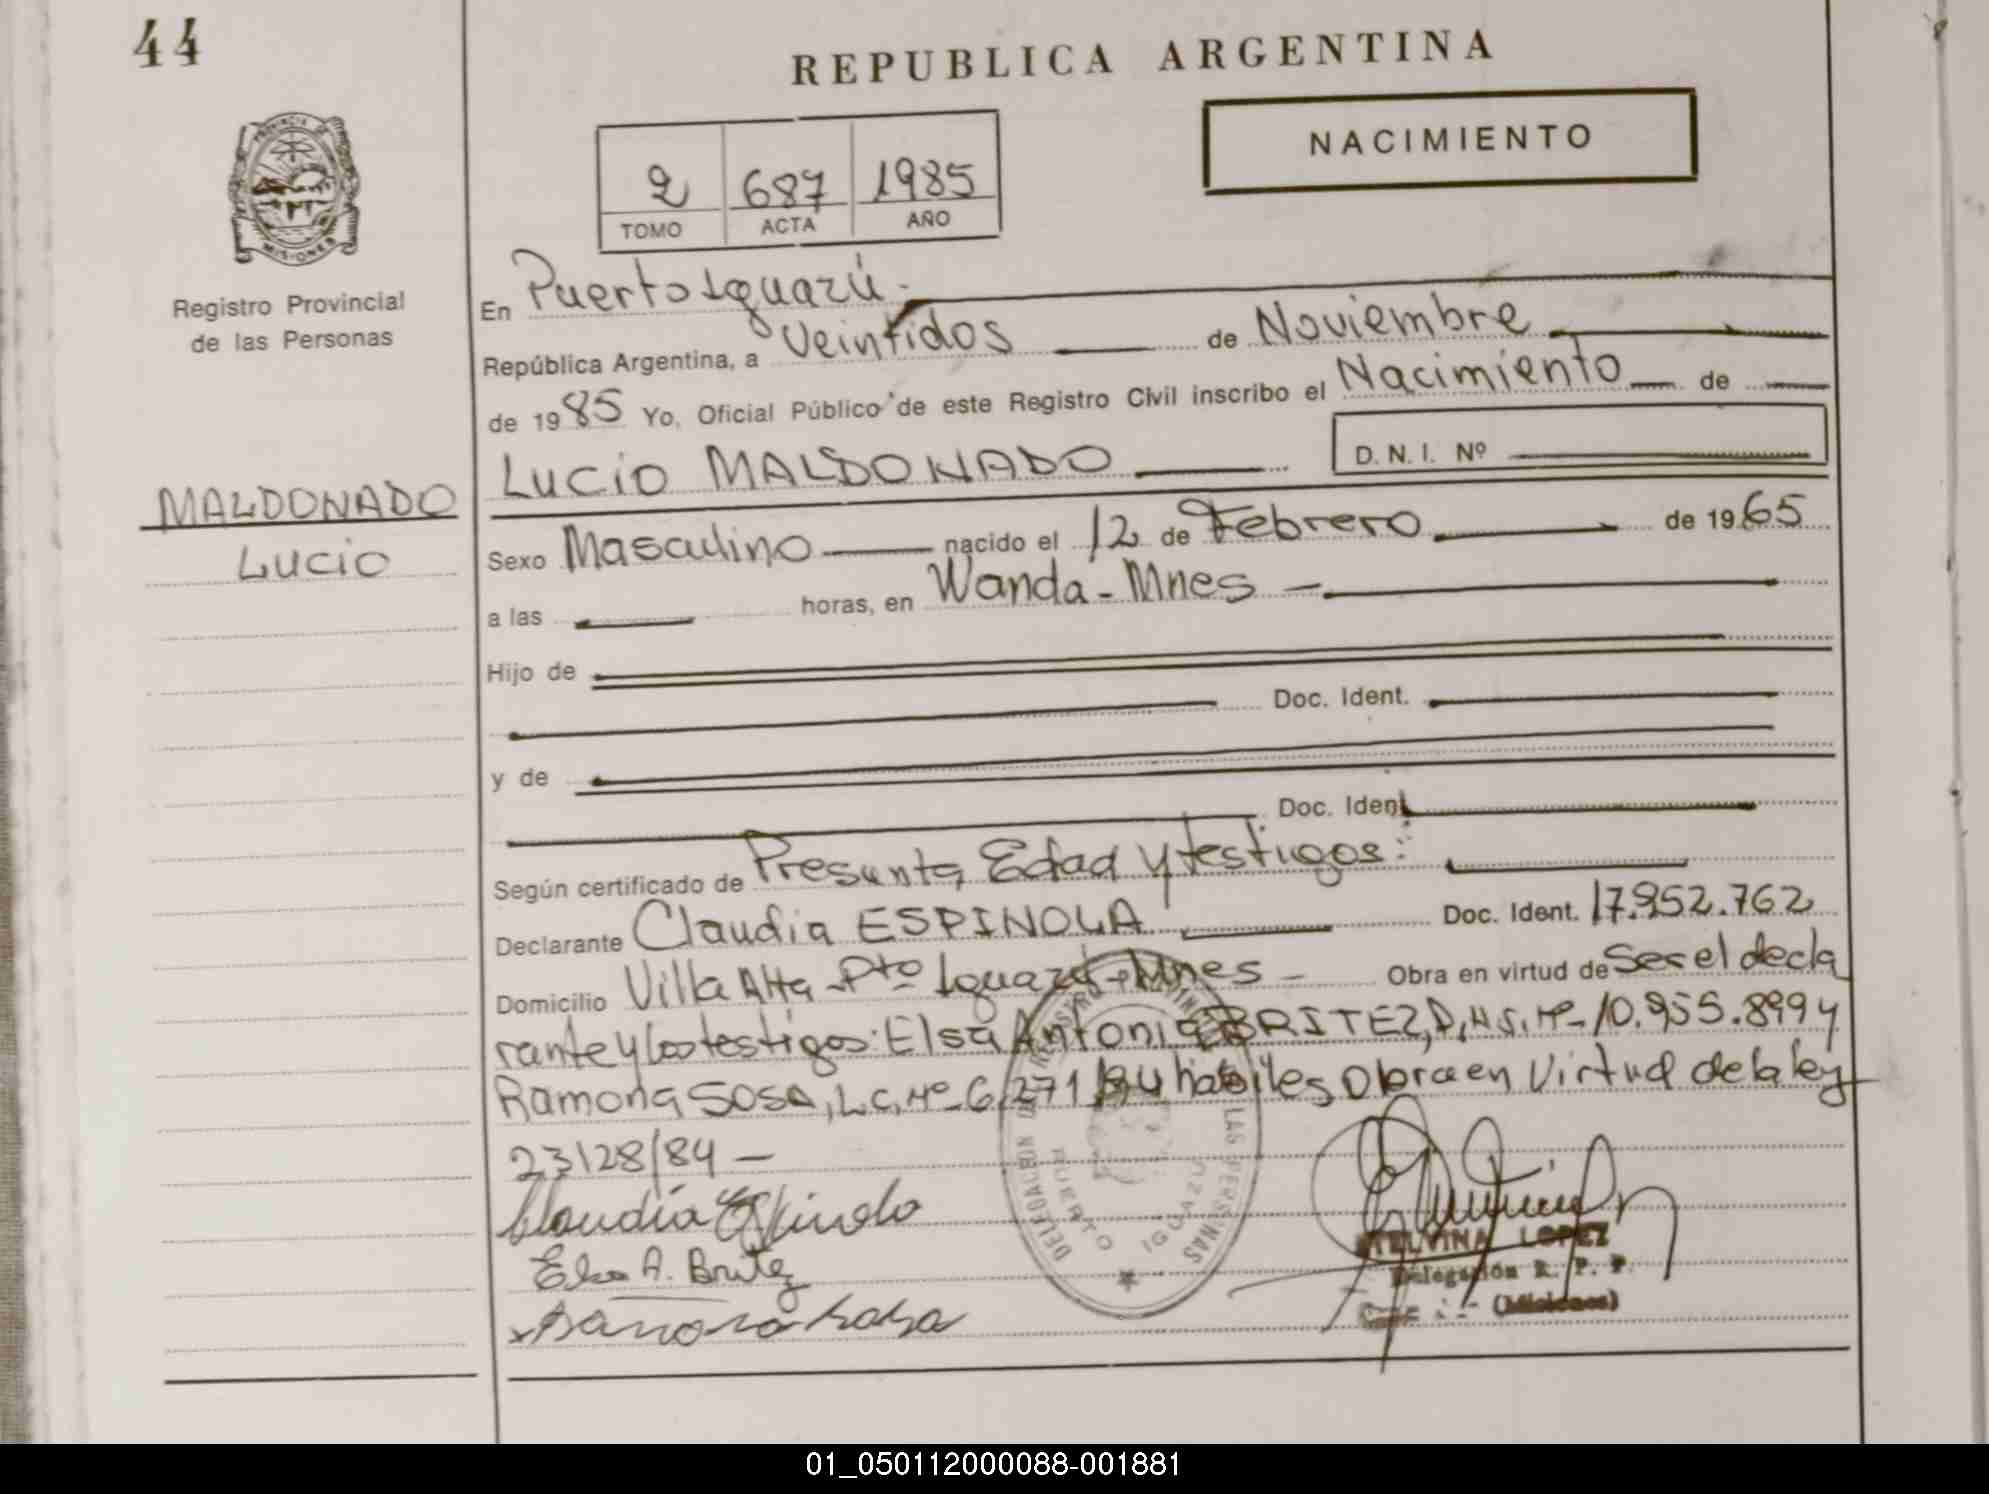 44
REPUBLICA ARGENTINA
NACIMIENTO
2 687 1985
TOMO ACTA AÑO
PROVINCIA DE
MISIONES
Registro Provincial
de las Personas
MALDONADO
Lucio
En Puerto Iguazú.
República Argentina, a Veintidos de Noviembre
de 1985 Yo, Oficial Público de este Registro Civil inscribo el Nacimiento de
LUCIO MALDONADO D. N. I. Nº
Sexo Masculino nacido el 12 de Febrero de 1965
a las horas, en Wanda - Mnes
Hijo de
Doc. Ident.
y de
Doc. Ident.
Según certificado de Presunta Edad y testigos:
Declarante Claudia ESPINOLA Doc. Ident. 17.952.762
Domicilio Villa Alta - Pto Iguazú - Mnes - Obra en virtud de Ser el decla
rante y los testigos: Elsa Antonia BRITEZ, Nº 10.955.899 y
Ramona SOSA, L.C. Nº 6.271 habiles Obra en Virtud de la ley
23128/84 -
Claudia Espinola
Elsa A. Britez
Ramona Sosa
DELEGACION REGISTRO PROVINCIAL LAS PERSONAS
PUERTO IGUAZU
ETELVINA LOPEZ
Delegación R. P. P.
(Misiones)
01_050112000088-001881